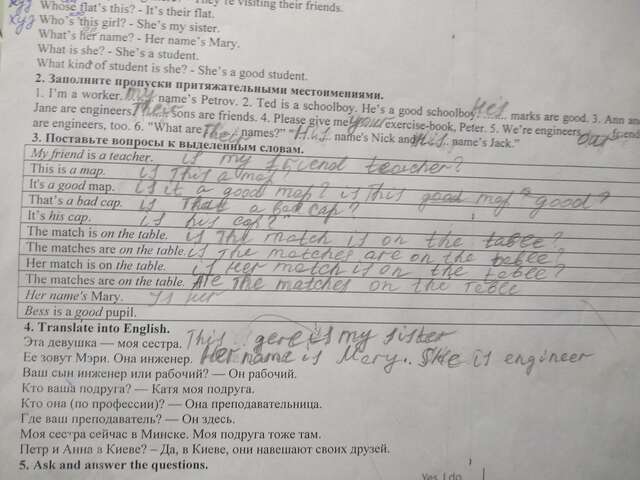 They're visiting their friends.
xyz Whose flat's this? - It's their flat.
xyz Who's this girl? - She's my sister.
What's her name? - Her name's Mary.
What is she? - She's a student.
What kind of student is she? - She's a good student.
2. Заполните пропуски притяжательными местоимениями.
1. I'm a worker. my name's Petrov. 2. Ted is a schoolboy. He's a good schoolboy. His marks are good. 3. Ann and
Jane are engineers. Their sons are friends. 4. Please give me your exercise-book, Peter. 5. We're engineers. our friends
are engineers, too. 6. "What are their names?" "His name's Nick and his name's Jack."
3. Поставьте вопросы к выделенным словам.
My friend is a teacher. is my friend teacher?
This is a map. is This a map?
It's a good map. is it a good map? is This good map "good?
That's a bad cap. is That a bad cap?
It's his cap. is his cap?
The match is on the table. is The match is on the table?
The matches are on the table. is The matches are on the table?
Her match is on the table. is Her match is on the table?
The matches are on the table. Are The matches on the Table
Her name's Mary. Is Her
Bess is a good pupil.
4. Translate into English.
Эта девушка — моя сестра. This gere is my sister
Ее зовут Мэри. Она инженер. Her name is Mary.. She is engineer
Ваш сын инженер или рабочий? — Он рабочий.
Кто ваша подруга? — Катя моя подруга.
Кто она (по профессии)? — Она преподавательница.
Где ваш преподаватель? — Он здесь.
Моя сестра сейчас в Минске. Моя подруга тоже там.
Петр и Анна в Киеве? – Да, в Киеве, они навешают своих друзей.
5. Ask and answer the questions.
Yes I do